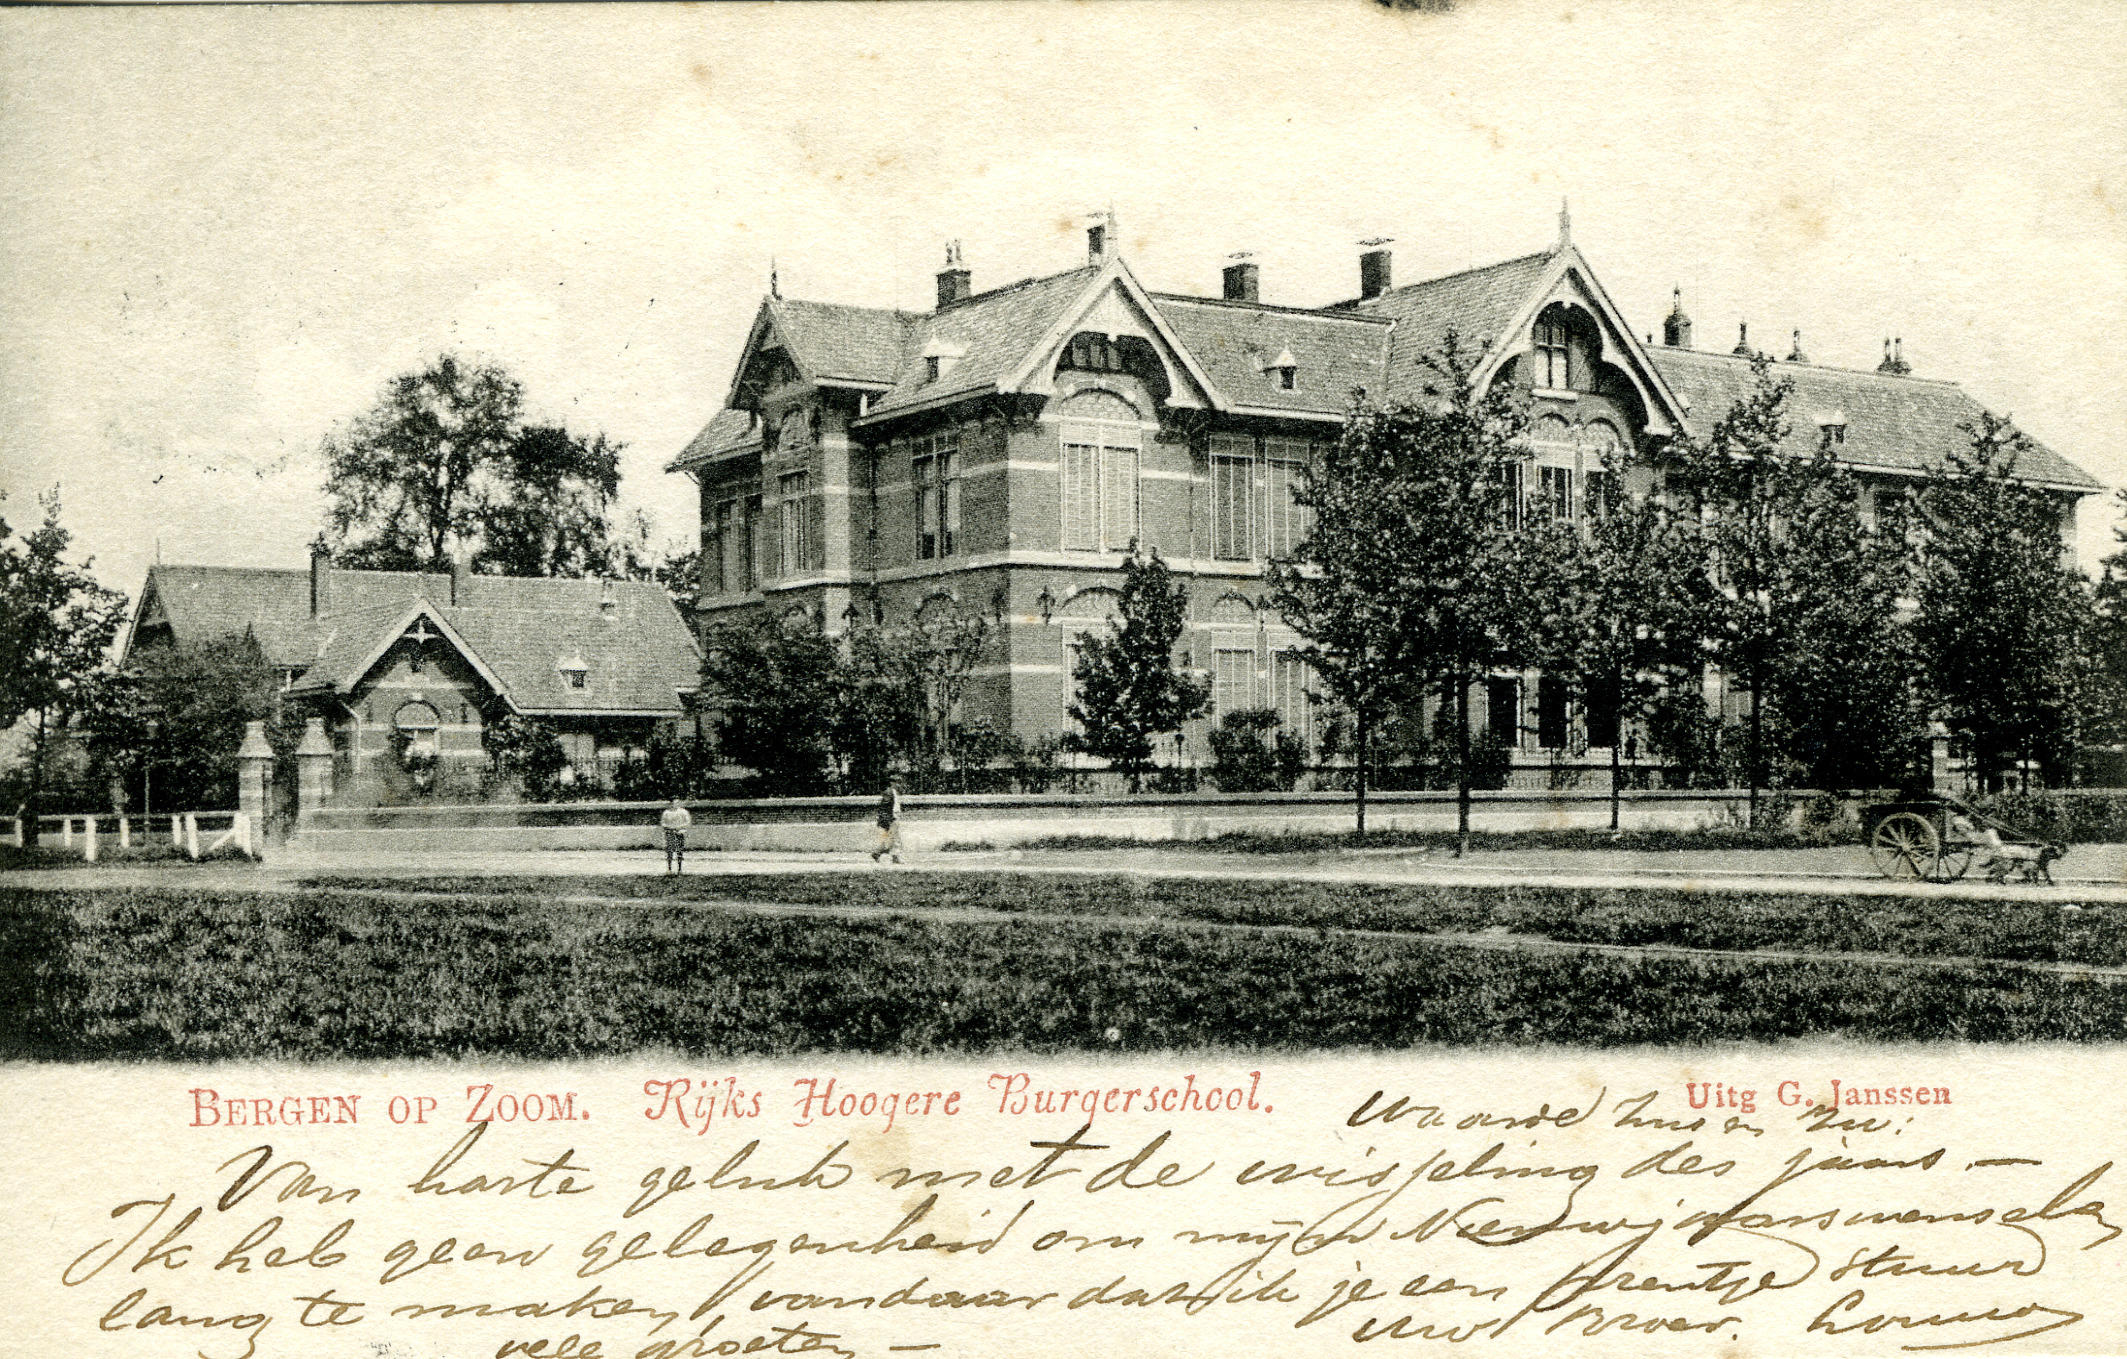 BERGEN OP ZOOM. Rijks Hoogere Burgerschool. Uitg G. Janssen
Waarde Zus en Zw:
Van harte geluk met de wisseling des jaars —
Ik heb geen gelegenheid om mijn Nieuwjaarswenschen
lang te maken, vandaar dat ik je een prentje stuur
vele groeten — Uw Broer.